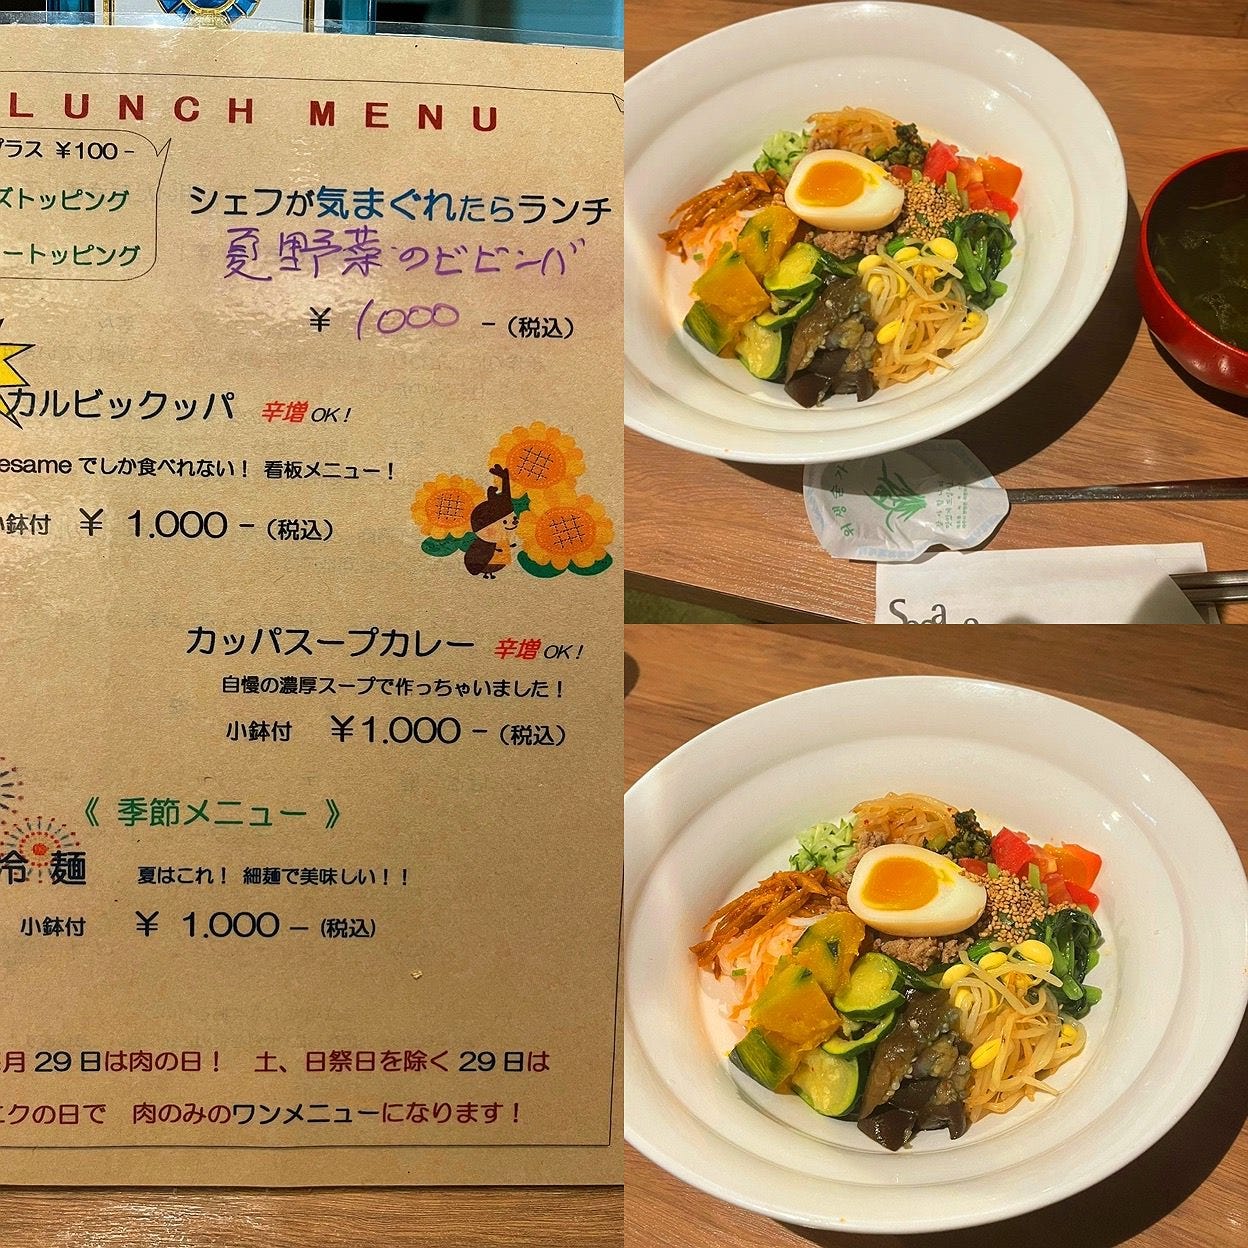 LUNCH MENU
プラス ¥100-
ズトッピング
ートッピング
シェフが気まぐれたらランチ
夏野菜のビビンバ
¥ 1000 -(税込)
カルビックッパ 辛増 OK!
esame でしか食べれない! 看板メニュー!
小鉢付 ¥ 1.000 -(税込)
カッパスープカレー 辛増 OK!
自慢の濃厚スープで作っちゃいました!
小鉢付 ¥1.000 -(税込)
《 季節メニュー 》
冷 麺 夏はこれ! 細麺で美味しい!!
小鉢付 ¥ 1.000 -(税込)
月 29 日は肉の日! 土、日祭日を除く 29 日は
ニクの日で 肉のみのワンメニューになります!